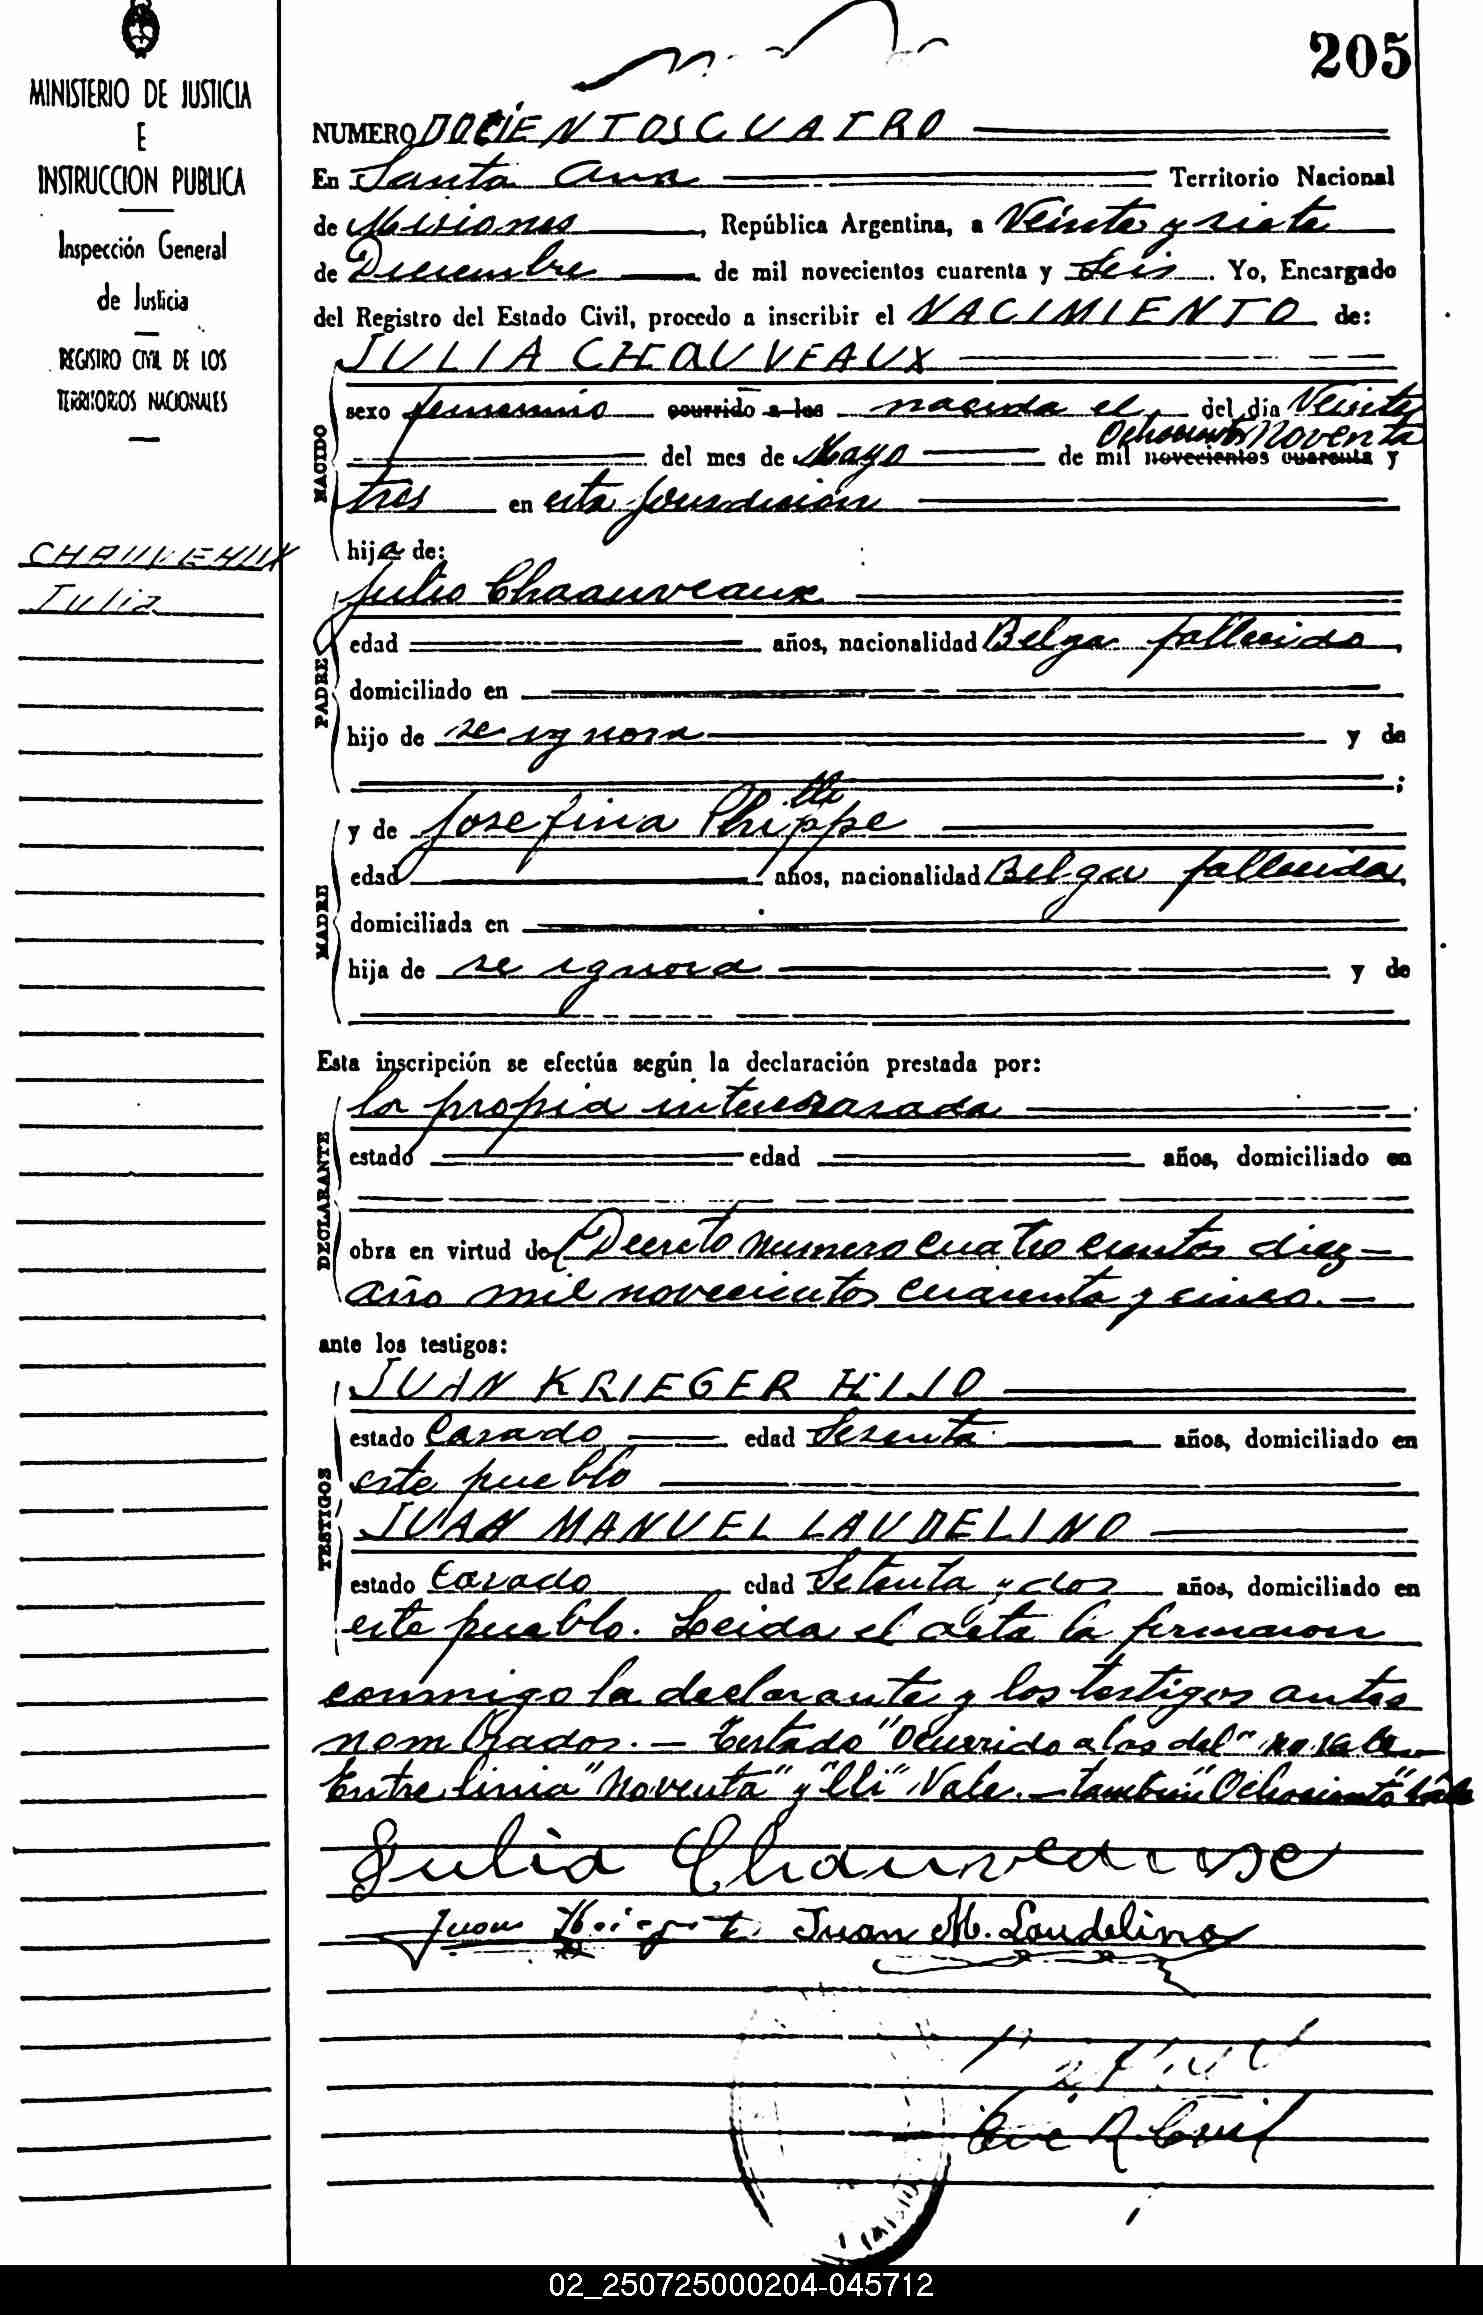 205
MINISTERIO DE JUSTICIA
E
INSTRUCCION PUBLICA
Inspección General
de Justicia
REGISTRO CIVIL DE LOS
TERRITORIOS NACIONALES
CHAUVEAUX
Julia
NUMERO DOCIENTOS CUATRO
En Santa Ana Territorio Nacional
de Misiones, República Argentina, a Veinte y siete
de Diciembre de mil novecientos cuarenta y Seis. Yo, Encargado
del Registro del Estado Civil, procedo a inscribir el NACIMIENTO de:
JULIA CHAUVEAUX
NACIDO
sexo femenino ocurrido a las nacida el del día Veinte
Ochocientos Noventa
del mes de Mayo de mil novecientos cuarenta y
tres en esta jurisdición
hija de:
Julio Chaauveaux
PADRE
edad años, nacionalidad Belga fallecido,
domiciliado en
hijo de se ignora y de
;
lli
y de Josefina Phippe
MADRE
edad años, nacionalidad Belga fallecida,
domiciliada en
hija de se ignora y de
Esta inscripción se efectúa según la declaración prestada por:
la propia interesada
DECLARANTE
estado edad años, domiciliado en
obra en virtud del Decreto numero cuatrocientos diez
año mil novecientos cuarenta y cinco.
ante los testigos:
JUAN KRIEGER HIJO
TESTIGOS
estado Casado edad Sesenta años, domiciliado en
este pueblo
JUAN MANUEL LAUDELINO
estado Casado edad Setenta y dos años, domiciliado en
este pueblo. Leida el acta la firmaron
conmigo la declarante y los testigos antes
nombrados. — Testado "Ocurrido a las del" no vale
Entre linia "Noventa" y "lli" Vale. — tambien "Ochociento" vale
Julia Chauveause
Juan Juan M. Laudelino
R. Civil
02_250725000204-045712